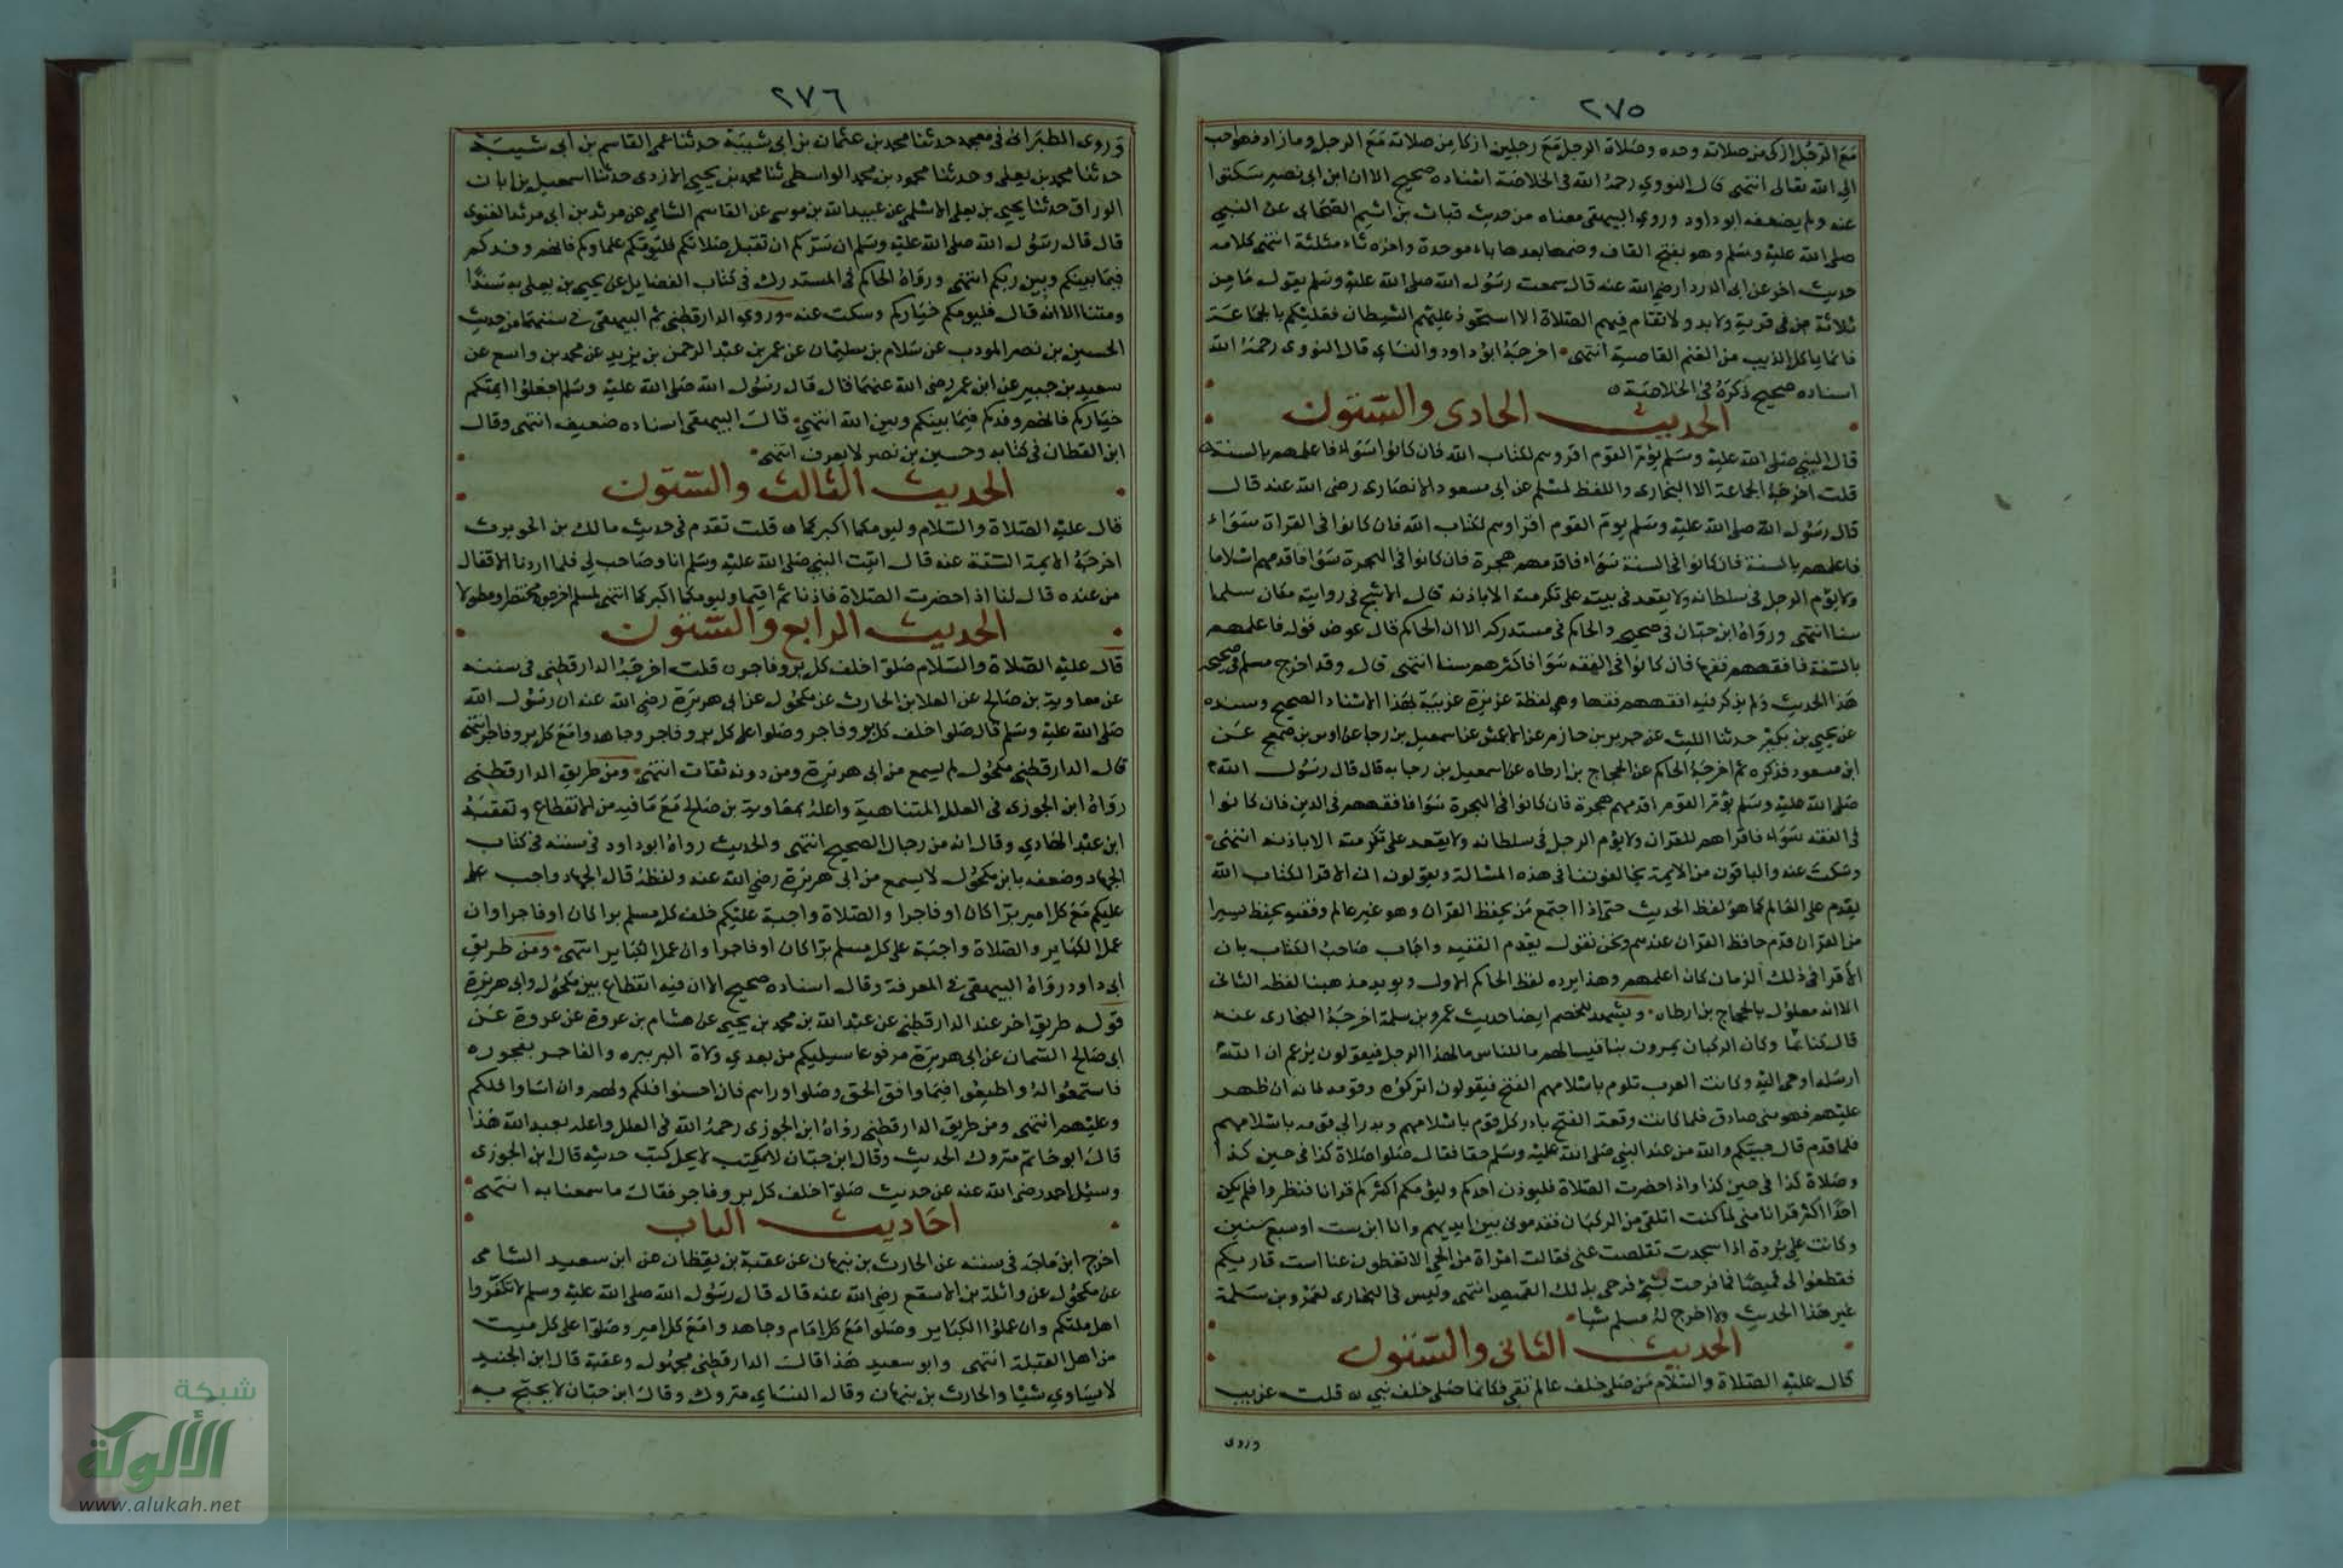 ٢٧٥
مع الرجل ازكى من صلاته وحده وصلاة الرجل مع رجلين ازكا من صلاته مع الرجل وما زاد فهو احب
الى الله تعالى انتهى قال النووي رحمه الله فى الخلاصة اسناده صحيح الا ان ابن ابى نصير سكتوا
عنه ولم يضعفه ابو داود وروى البيهقى معناه من حديث قباث بن اشيم الصحابى عن النبي
صلى الله عليه وسلم وهو بفتح القاف وضمها بعدها باء موحدة واخره ثاء مثلثة انتهى كلامه
حديث اخر عن ابى الدردا رضي الله عنه قال سمعت رسول الله صلى الله عليه وسلم يقول ما من
ثلاثة من فى قرية ولا بدو لا تقام فيهم الصلاة الا استحوذ عليهم الشيطان فعليكم بالجماعة
فانما ياكل الذيب من الغنم القاصية انتهى اخرجه ابو داود والنساى قال النووى رحمه الله
اسناده صحيح ذكره فى الخلاصة ٥
الحديث الحادى والستون
قال النبي صلى الله عليه وسلم يؤم القوم اقروهم لكتاب الله فان كانوا سواء فاعلمهم بالسنة ٥
قلت اخرجه الجماعة الا البخارى واللفظ لمسلم عن ابى مسعود الانصارى رضى الله عنه قال
قال رسول الله صلى الله عليه وسلم يوم القوم اقراوهم لكتاب الله فان كانوا فى القراة سواء
فاعلمهم بالسنة فان كانوا فى السنة سواء فاقدمهم هجرة فان كانوا فى الهجرة سوا فاقدمهم اسلاما
ولا يؤم الرجل فى سلطانه ولا يقعد فى بيته على تكرمته الا باذنه قال الاشج فى روايته مكان سلما
سنا انتهى ورواه ابن حبان فى صحيحه والحاكم فى مستدركه الا ان الحاكم قال عوض قوله فاعلمهم
بالسنة فافقههم فقها فان كانوا فى الفقه سوا فاكثرهم سنا انتهى قال وقد اخرج مسلم فى صحيحه
هذا الحديث ولم يذكر فيه افقههم فقها وهى لفظة عزيزة غريبة بهذا الاسناد الصحيح وسنده
عن يحيى بن بكير حدثنا الليث عن جرير بن حازم عن الاعمش عن اسمعيل بن رجا عن اوس بن ضمعج عن
ابن مسعود فذكره ثم اخرجه الحاكم عن الحجاج بن ارطاه عن اسمعيل بن رجا به قال قال رسول الله
صلى الله عليه وسلم يؤم القوم اقدمهم هجرة فان كانوا فى الهجرة سوا فافقههم فى الدين فان كانوا
فى الفقه سواء فاقراهم للقران ولا يؤم الرجل فى سلطانه ولا يقعد على تكرمته الا باذنه انتهى
وسكت عنه والباقون من الايمة يخالفوننا فى هذه المسالة ويقولون ان الاقرا لكتاب الله
يقدم على العالم كما هو لفظ الحديث حتى اذا اجتمع من يحفظ القران وهو غير عالم وفقيه يحفظ يسيرا
من القران قدم حافظ القران عندهم ونحن نقول يقدم الفقيه واجاب صاحب الكتاب بان
الاقرا فى ذلك الزمان كان اعلمهم وهذا يرده لفظ الحاكم الاول ويويد مذهبنا لفظه الثانى
الا انه معلول بالحجاج بن ارطاه ويشهد للخصم ايضا حديث عمرو بن سلمة اخرجه البخارى عنه
قال كنا بما وكان الركبان يمرون بنا فيسالهم ما للناس ما لهذا الرجل فيقولون يزعم ان الله
ارسله اوحى اليه وكانت العرب تلوم باسلامهم الفتح فيقولون اتركوه وقومه فانه ان ظهر
عليهم فهو نبى صادق فلما كانت وقعة الفتح بادر كل قوم باسلامهم وبدر ابى قومه باسلامهم
فلما قدم قال جيتكم والله من عند النبي صلى الله عليه وسلم حقا فقال صلوا صلاة كذا فى حين كذا
وصلاة كذا فى حين كذا واذا حضرت الصلاة فليوذن احدكم وليؤمكم اكثركم قرانا فنظروا فلم يكن
احدا اكثر قرانا منى لما كنت اتلقى من الركبان فقدمونى بين ايديهم وانا ابن ست او سبع سنين
وكانت علي بردة اذا سجدت تقلصت عنى فقالت امراة من الحي الا تغطون عنا است قاريكم
فقطعوا لى قميصا فما فرحت بشئ فرحى بذلك القميص انتهى وليس فى البخارى لعمرو بن سلمة
غير هذا الحديث ولا اخرج له مسلم شيا
الحديث الثانى والستون
قال عليه الصلاة والسلام من صلى خلف عالم تقي فكانما صلى خلف نبي ٥ قلت غريب
وروى
٢٧٦
وروى الطبرانى فى معجمه حدثنا محمد بن عثمان بن ابى شيبة حدثنا عمى القاسم بن ابى شيبة
حدثنا محمد بن يعلى وحدثنا محمود بن محمد الواسطى ثنا محمد بن يحيى الازدى حدثنا اسمعيل بن ابان
الوراق حدثنا يحيى بن يعلى الاسلمى عن عبيد الله بن موسى عن القاسم الشامي عن مرثد بن ابى مرثد الغنوى
قال قال رسول الله صلى الله عليه وسلم ان سركم ان تقبل صلاتكم فليؤمكم علماوكم فانهم وفدكم
فيما بينكم وبين ربكم انتهى ورواه الحاكم فى المستدرك فى كتاب الفضايل عن يحيى بن يعلى به سندا
ومتنا الا انه قال فليومكم خياركم وسكت عنه وروى الدارقطنى ثم البيهقى فى سننهما من حديث
الحسين بن نصر المودب عن سلام بن سليمان عن عمر بن عبد الرحمن بن يزيد عن محمد بن واسع عن
سعيد بن جبير عن ابن عمر رضى الله عنهما قال قال رسول الله صلى الله عليه وسلم اجعلوا ايمتكم
خياركم فانهم وفدكم فيما بينكم وبين الله انتهى قال البيهقى اسناده ضعيف انتهى وقال
ابن القطان فى كتابه وحسين بن نصر لا يعرف انتهى
الحديث الثالث والستون
قال عليه الصلاة والسلام وليومكما اكبركما ٥ قلت تقدم فى حديث مالك بن الحويرث
اخرجه الايمة الستة عنه قال اتيت النبي صلى الله عليه وسلم انا وصاحب لي فلما اردنا الاقفال
من عنده قال لنا اذا حضرت الصلاة فاذنا ثم اقيما وليومكما اكبركما انتهى لمسلم اخرجوه مختصرا ومطولا
الحديث الرابع والستون
قال عليه الصلاة والسلام صلوا خلف كل بر وفاجر ٥ قلت اخرجه الدارقطنى فى سننه
عن معاوية بن صالح عن العلا بن الحارث عن مكحول عن ابى هريرة رضى الله عنه ان رسول الله
صلى الله عليه وسلم قال صلوا خلف كل بر وفاجر وصلوا على كل بر وفاجر وجاهدوا مع كل بر وفاجر انتهى
قال الدارقطنى مكحول لم يسمع من ابى هريرة ومن دونه ثقات انتهى ومن طريق الدارقطنى
رواه ابن الجوزى فى العلل المتناهية واعله بمعاوية بن صالح مع ما فيه من الانقطاع وتعقبه
ابن عبد الهادي وقال انه من رجال الصحيح انتهى والحديث رواه ابو داود فى سننه فى كتاب
الجهاد وضعفه بان مكحول لا يسمع من ابى هريرة رضي الله عنه ولفظه قال الجهاد واجب
عليكم مع كل امير برا كان او فاجرا والصلاة واجبة عليكم خلف كل مسلم برا كان او فاجرا وان
عمل الكباير والصلاة واجبة على كل مسلم برا كان او فاجرا وان عمل الكباير انتهى ومن طريق
ابى داود رواه البيهقى فى المعرفة وقال اسناده صحيح الا ان فيه انقطاع بين مكحول وابى هريرة
قوله طريق اخر عند الدارقطنى عن عبد الله بن محمد بن يحيى عن هشام بن عروة عن عروة عن
ابى صالح السمان عن ابى هريرة مرفوعا سيليكم من بعدي ولاة البر ببره والفاجر بفجوره
فاستمعوا له واطيعوا فيما وافق الحق وصلوا وراهم فان احسنوا فلكم ولهم وان اساوا فلكم
وعليهم انتهى ومن طريق الدارقطنى رواه ابن الجوزى رحمه الله فى العلل واعله بعبد الله هذا
قال ابو حاتم متروك الحديث وقال ابن حبان لا يكتب لا يحل كتب حديثه قال ابن الجوزى
وسئل احمد رضى الله عنه عن حديث صلوا خلف كل بر وفاجر فقال ما سمعنا به انتهى
احاديث الباب
اخرج ابن ماجه فى سننه عن الحارث بن نبهان عن عقبة بن يقظان عن ابى سعيد الشامى
عن مكحول عن واثلة بن الاسقع رضي الله عنه قال قال رسول الله صلى الله عليه وسلم لا تكفروا
اهل ملتكم وان عملوا الكباير وصلوا مع كل امام وجاهدوا مع كل امير وصلوا على كل ميت
من اهل القبلة انتهى وابو سعيد هذا قال الدارقطنى مجهول وعقبة قال ابن الجنيد
لا يساوي شيئا والحارث بن نبهان وقال النساي متروك وقال ابن حبان لا يحتج به
شبكة
الألوكة
www.alukah.net